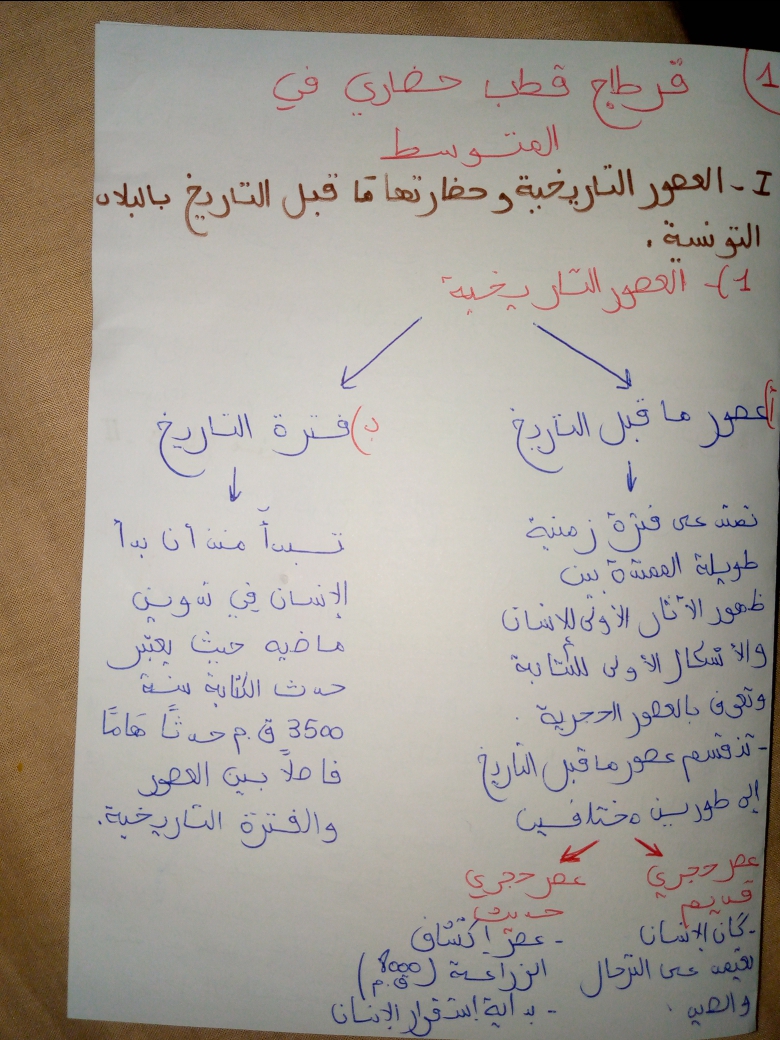 1) قرطاج قطب حضاري في
المتوسط
I - العصور التاريخية وحضارتها ما قبل التاريخ بالبلاد
التونسية .
1)- العصور التاريخية
أ) عصور ما قبل التاريخ
تمتد على فترة زمنية
طويلة الممتدة بين
ظهور الآثار الأولى للإنسان
والأشكال الأولى للكتابة
وتعرف بالعصور الحجرية .
- تنقسم عصور ما قبل التاريخ
إلى طورين مختلفين
عصر حجري
قديم
- كان الإنسان
يعتمد على الترحال
والصيد .
عصر حجري
حديث
- عصر اكتشاف
الزراعة (8000
ق.م)
- بداية استقرار الإنسان
ب) فترة التاريخ
تبدأ منذ أن بدأ
الإنسان في تدوين
ماضيه حيث يعتبر
حدث الكتابة سنة
3500 ق.م حدثًا هامًا
فاصلاً بين العصور
والفترة التاريخية.